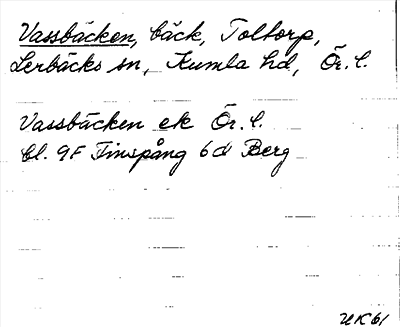 Vassbäcken, bäck, Toltorp,
Lerbäcks sn, Kumla hd, Ör. l.
Vassbäcken ek Ör. l.
bl. 9F Finspång 6d Berg
UK 61